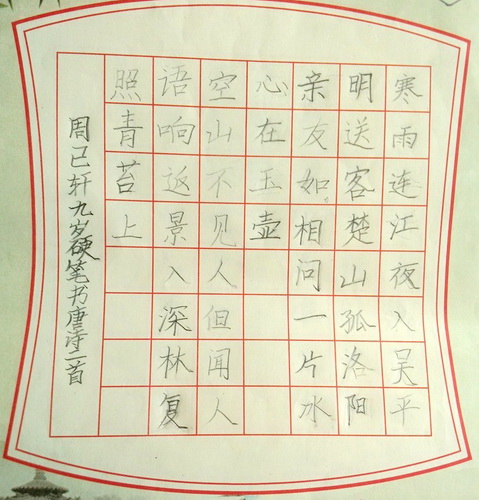 寒雨连江夜入吴平
明送客楚山孤洛阳
亲友如相问一片水
心在玉壶
空山不见人但闻人
语响返景入深林复
照青苔上
周已轩九岁硬笔书唐诗二首